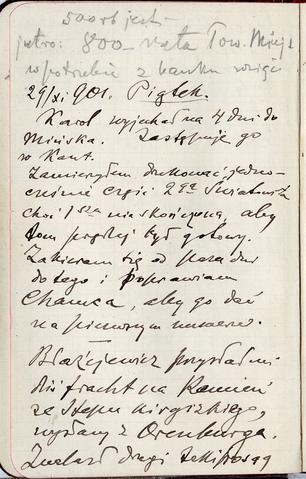 500 rb jest -
jutro: 800 - rata Tow. Miejs
w potrzebie z banku wziąć
29/XI 901. Piątek.
Karol wyjechał na 4 dni do
Mińska. Zastępuje go
w Kant.
Zamierzyłem drukować jedno-
cześnie część 2gą
choć 1sza nieskończona, aby
tom prędzej był gotowy.
Zabieram się od paru dni
do tego i poprawiam
Chamca, aby go dać
na pierwszym
Błażejewicz przysłał mi
dziś fracht na Kamień
ze Stepu Kirgizkiego,
wysłany z Orenburga.
drogi